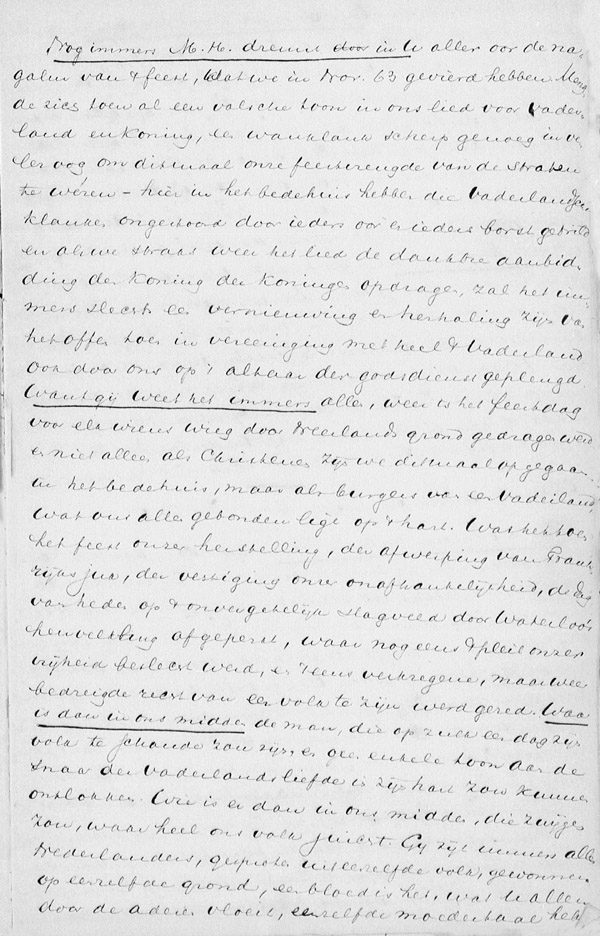 Nog immers M. H. dreunt door in U aller oor de na-
galm van 't feest, dat we in Nov. 63 gevierd hebben. Meng
de zich toen al een valsche toon in ons lied voor vader-
land en koning, een wanklank scherp genoeg in ve-
ler oog om ditmaal onze feestvreugde van de straten
te wéren – hier in het bedehuis hebben die vaderlandsche
klanken ongestoord door ieders oor en ieders borst getrild
en als we straks weer het lied de dankbre aanbid-
ding den Koning der Koningen opdragen, zal het im-
mers slechts een vernieuwing en herhaling zijn van
het offer toen in vereeniging met heel 't Vaderland
ook door ons op 't altaar der godsdienst geplengd.
Want gij weet het immers allen, weer is het feestdag
voor elk wiens wieg door Neerlands grond gedragen werd
en niet alleen als Christenen zijn we ditmaal opgegaan
in het bedehuis, maar als burgers van een Vaderland,
wat ons allen gebonden ligt op 't hart. Was het toen
het feest onzer herstelling, der afwerping van Frank-
rijks juk, der vestiging onzer onafhankelijkheid, de dag
van heden op 't onvergetelijk slagveld door Waterloo's
heuvelkling afgeperst, waar nog eens 't pleit onzer
vrijheid beslecht werd, en 't eens verkregene, maar weer
bedreigde recht van een volk te zijn werd gered. Waar
is dan in ons midden de man, die op zulk een dag zijn
volk te schande zou zijn, en geen enkele toon aan de
snaar der vaderlandsliefde in zijn hart zou kunnen
ontlokken. Wie is er dan in ons midden, die zwijgen
zou, waar heel ons volk juicht. Gij zijt immers allen
Nederlanders, gesproten uit eenzelfde volk, gewonnen
op eenzelfde grond, een bloed is het, wat U allen
door de aderen vloeit, eenzelfde moedertaal hebt